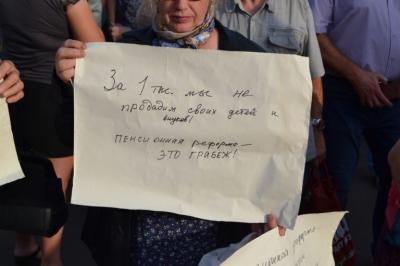 За 1 тыс. мы не
продадим своих детей и
внуков!
ПЕНСИОННАЯ реформа —
ЭТО ГРАБЕЖ!